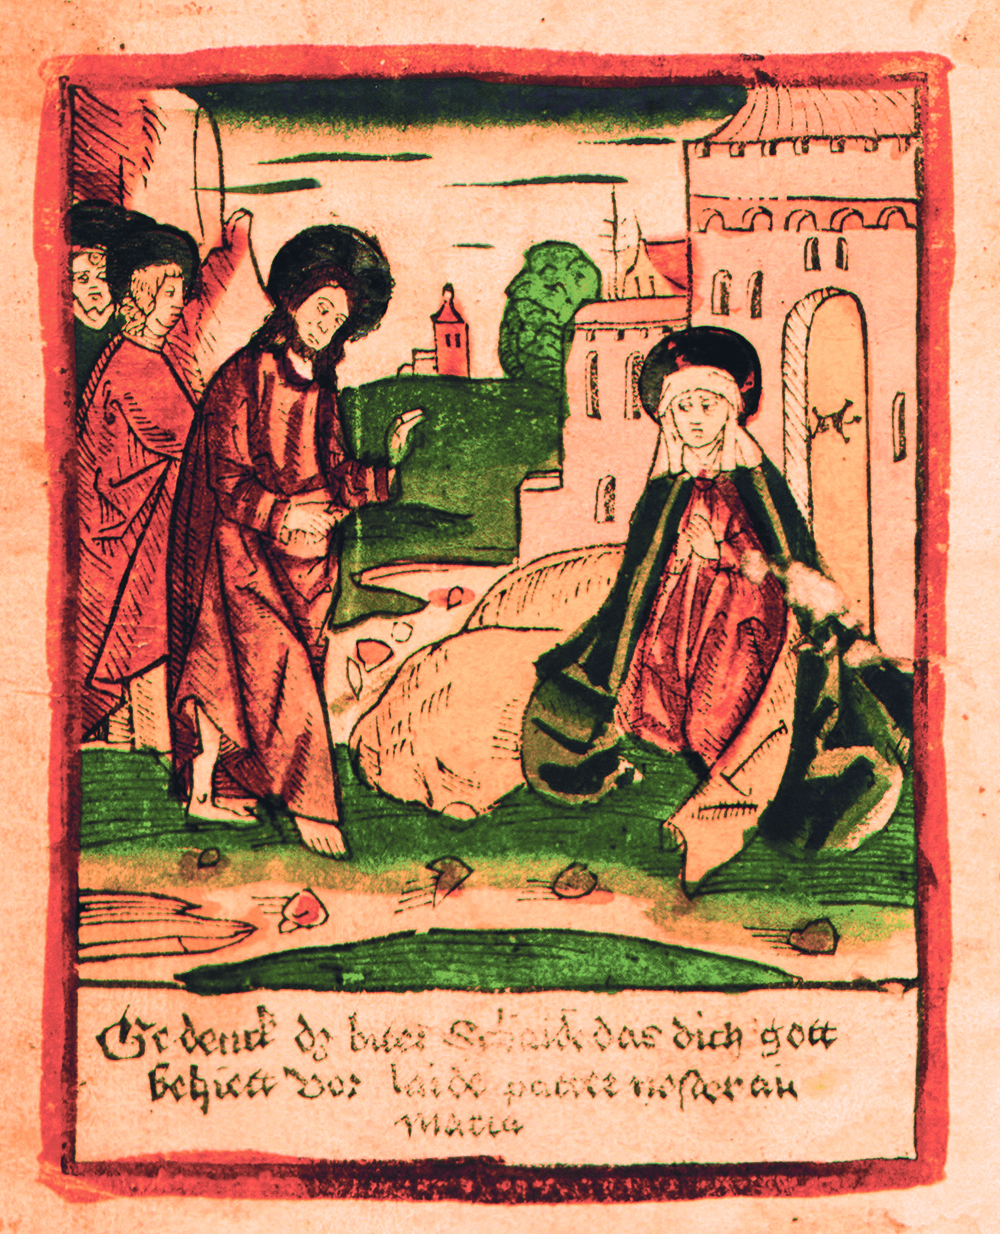 Gedenck dz biter Schaide das dich gott
behiett Vor laide pater noster au
Maria